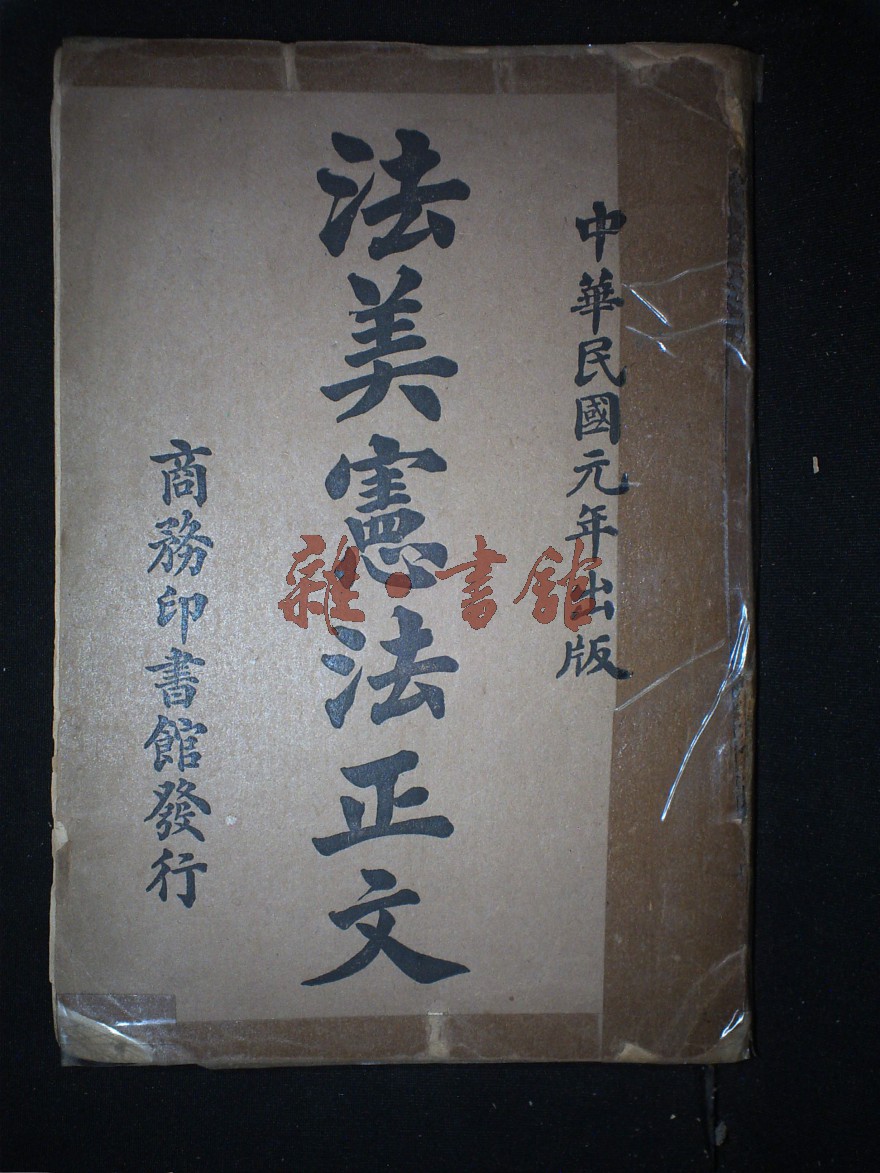 中華民國元年出版
法美憲法正文
商務印書館發行
雜·書館